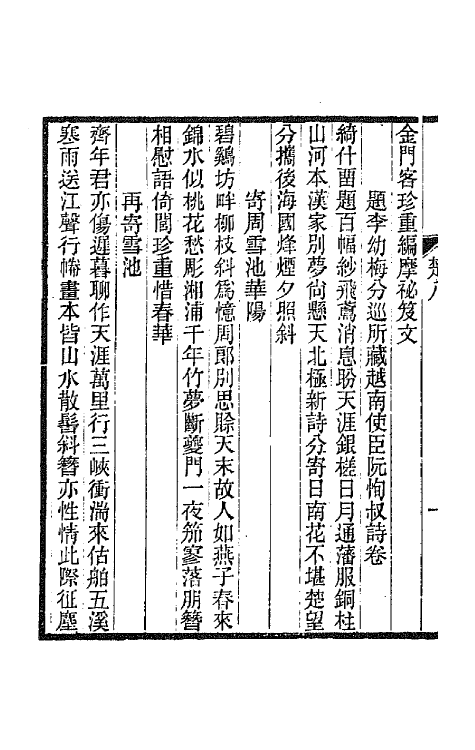 金門客珍重編摩祕笈文
題李幼梅分巡所藏越南使臣阮恂叔詩卷
綺什畱題百幅紗飛鳶消息盼天涯銀槎日月通藩服銅柱
山河本漢家別夢尙懸天北極新詩分寄日南花不堪楚望
分攜後海國烽煙夕照斜
寄周雪池華陽
碧雞坊畔柳枝斜爲憶周郞別思賒天末故人如燕子春來
錦水似桃花愁彫湘浦千年竹夢斷夔門一夜笳寥落朋簪
相慰語倚閭珍重惜春華
再寄雪池
齊年君亦傷遲暮聊作天涯萬里行三峽衝湍來估舶五溪
寒雨送江聲行幐畫本皆山水散髻斜簪亦性情此際征塵
楚八
一